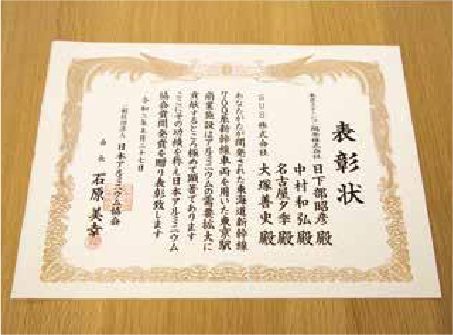 表彰状
株式会社 日下部昭彦殿
中村和弘殿
名古屋夕季殿
SUS株式会社 大塚善史殿
あなたがたが開発された東海道新幹線
700系新幹線車両を用いた東京駅
商業施設はアルミニウムの需要拡大に
貢献するところ極めて顕著であります
ここにその功績を称え日本アルミニウム
協会賞開発賞を贈り表彰致します
令和二年五月二十七日
一般社団法人 日本アルミニウム協会
会長 石原美幸